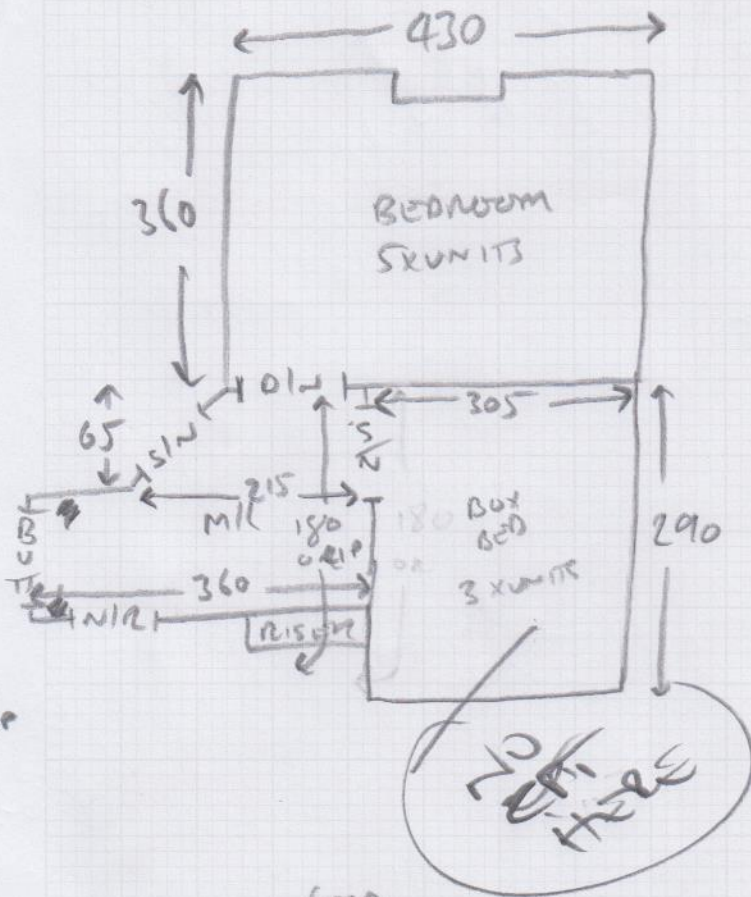 430
360
BEDROOM
5XUNITS
D/N
305
65
S/N
S/N
215
M/R
180
180
BOX
BED
3 XUNITS
290
BUTT
360
N/R
RISER
HERE